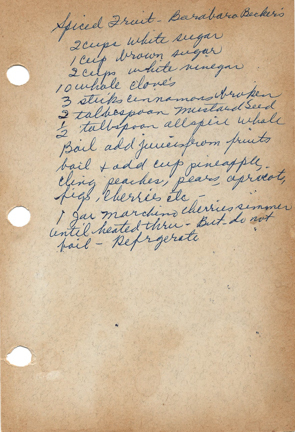 Spiced Fruit - Barabara Becker's
2 cups white sugar
1 cup brown sugar
2 cups white vinegar
10 whole clove's
3 sticks cinnamon broken
2 tablespoon mustard seed
2 tablspoon allspice whole
Boil add juices from fruits
boil + add cup pineapple,
cling peaches, pears, apricots,
figs, cherries etc -
1 jar marchino cherries simmer
until heated thru - But do not
boil - Refrgerate